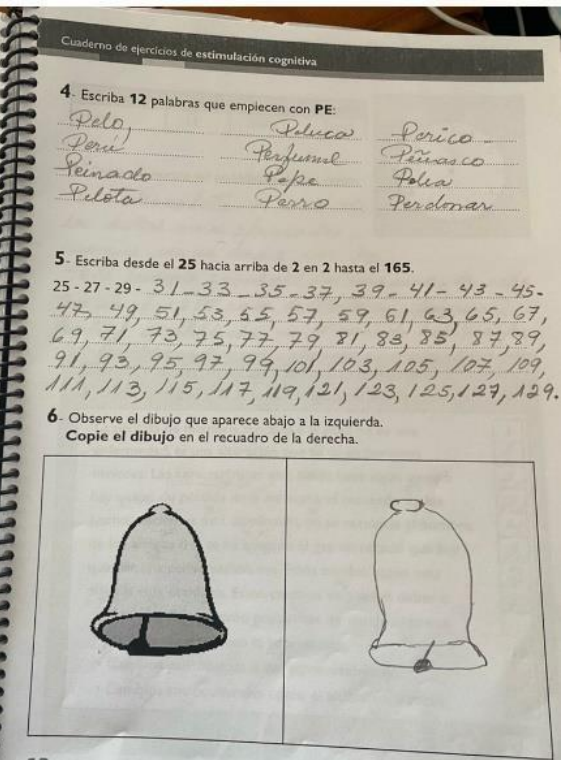 Cuaderno de ejercicios de estimulación cognitiva
4- Escriba 12 palabras que empiecen con PE:
Pelo, Peluca Perico
Perú Perfume Peñasco
Peinado Pepe Pelea
Pelota Perro Perdonar
5- Escriba desde el 25 hacia arriba de 2 en 2 hasta el 165.
25 - 27 - 29 - 31 - 33 - 35 - 37, 39 - 41 - 43 - 45 -
47, 49, 51, 53, 55, 57, 59, 61, 63, 65, 67,
69, 71, 73, 75, 77, 79, 81, 83, 85, 87, 89,
91, 93, 95, 97, 99, 101, 103, 105, 107, 109,
111, 113, 115, 117, 119, 121, 123, 125, 127, 129.
6- Observe el dibujo que aparece abajo a la izquierda.
Copie el dibujo en el recuadro de la derecha.